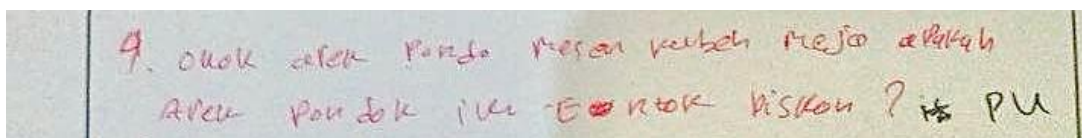 9. onok arek Pondo mesen kabeh meja apakah
Arek pondok iku Entok Diskon ? PU